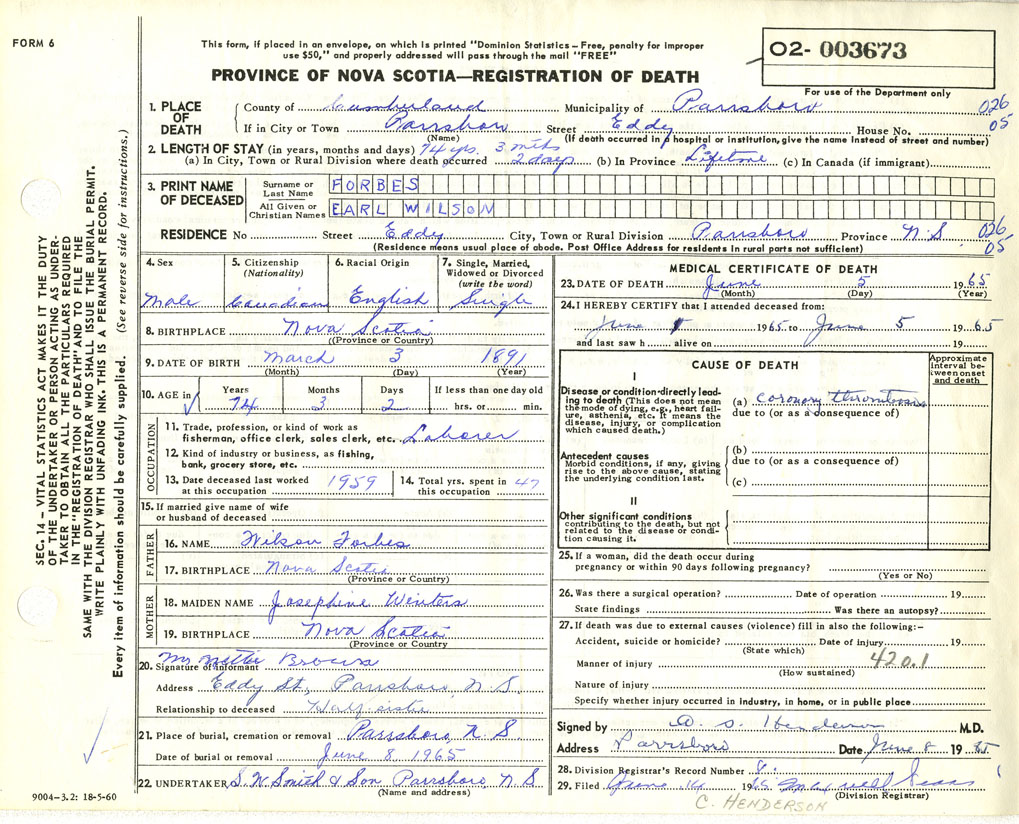 FORM 6
This form, if placed in an envelope, on which is printed "Dominion Statistics – Free, penalty for improper
use $50," and properly addressed will pass through the mail "FREE"
PROVINCE OF NOVA SCOTIA—REGISTRATION OF DEATH
02- 003673
For use of the Department only
SEC. 14 – VITAL STATISTICS ACT MAKES IT THE DUTY
OF THE UNDERTAKER OR PERSON ACTING AS UNDER-
TAKER TO OBTAIN ALL THE PARTICULARS REQUIRED
IN THE "REGISTRATION OF DEATH" AND TO FILE THE
SAME WITH THE DIVISION REGISTRAR WHO SHALL ISSUE THE BURIAL PERMIT.
WRITE PLAINLY WITH UNFADING INK. THIS IS A PERMANENT RECORD.
Every item of information should be carefully supplied. (See reverse side for instructions.)
1. PLACE OF DEATH
County of Cumberland Municipality of Parrsboro 026
If in City or Town Parrsboro Street Eddy House No. 05
(Name) (If death occurred in a hospital or institution, give the name instead of street and number)
2. LENGTH OF STAY (in years, months and days) 74 yrs. 3 mths
(a) In City, Town or Rural Division where death occurred 2 days (b) In Province Lifetime (c) In Canada (if immigrant)
3. PRINT NAME OF DECEASED
Surname or Last Name FORBES
All Given or Christian Names EARL WILSON
RESIDENCE No Street Eddy City, Town or Rural Division Parrsboro Province N.S 026
(Residence means usual place of abode. Post Office Address for residents in rural parts not sufficient) 05
4. Sex 5. Citizenship (Nationality) 6. Racial Origin 7. Single, Married, Widowed or Divorced (write the word)
Male Canadian English Single
8. BIRTHPLACE Nova Scotia
(Province or Country)
9. DATE OF BIRTH March 3 1891
(Month) (Day) (Year)
10. AGE in Years Months Days If less than one day old
74 3 2 hrs. or min.
OCCUPATION
11. Trade, profession, or kind of work as
fisherman, office clerk, sales clerk, etc. Laborer
12. Kind of industry or business, as fishing,
bank, grocery store, etc.
13. Date deceased last worked at this occupation 1959
14. Total yrs. spent in this occupation 47
15. If married give name of wife
or husband of deceased
FATHER
16. NAME Wilson Forbes
17. BIRTHPLACE Nova Scotia
(Province or Country)
MOTHER
18. MAIDEN NAME Josephine Winters
19. BIRTHPLACE Nova Scotia
(Province or Country
20. Signature of informant Mrs Nettie Brown
Address Eddy St, Parrsboro, N.S.
Relationship to deceased Half-sister
21. Place of burial, cremation or removal Parrsboro, N.S
Date of burial or removal June 8, 1965
22. UNDERTAKER S.W. Smith & Son Parrsboro, N.S
(Name and address)
9004–3.2: 18-5-60
MEDICAL CERTIFICATE OF DEATH
23. DATE OF DEATH June 5 1965
(Month) (Day) (Year)
24. I HEREBY CERTIFY that I attended deceased from:
June 1965 to June 5 1965
and last saw h alive on 19
CAUSE OF DEATH
Approximate interval between onset and death
I
Disease or condition directly lead-
ing to death (This does not mean
the mode of dying, e.g., heart fail-
ure, asthenia, etc. It means the
disease, injury, or complication
which caused death.)
(a) coronary thrombosis
due to (or as a consequence of)
Antecedent causes
Morbid conditions, if any, giving
rise to the above cause, stating
the underlying condition last.
(b)
due to (or as a consequence of)
(c)
II
Other significant conditions
contributing to the death, but not
related to the disease or condi-
tion causing it.
25. If a woman, did the death occur during
pregnancy or within 90 days following pregnancy?
(Yes or No)
26. Was there a surgical operation? Date of operation 19
State findings Was there an autopsy?
27. If death was due to external causes (violence) fill in also the following:–
Accident, suicide or homicide? Date of injury 19
(State which)
Manner of injury 420.1
(How sustained)
Nature of injury
Specify whether injury occurred in industry, in home, or in public place
Signed by M.D.
Address Parrsboro Date June 8 1965
28. Division Registrar's Record Number
29. Filed June 14 1965
(Division Registrar)
C. HENDERSON